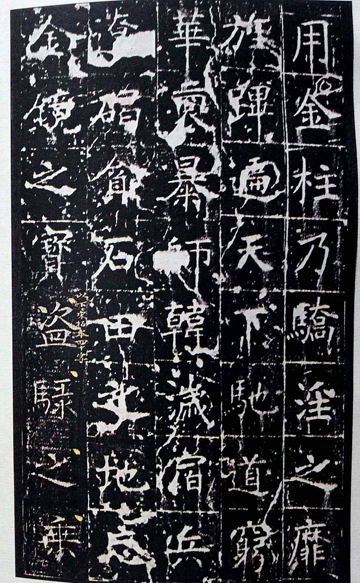 用金柱乃驕淫之靡
旌蹕遍天下馳道窮
華裔暴師韓濊宿兵
碣石田土地忘
金鏡之寶盜騄之乘